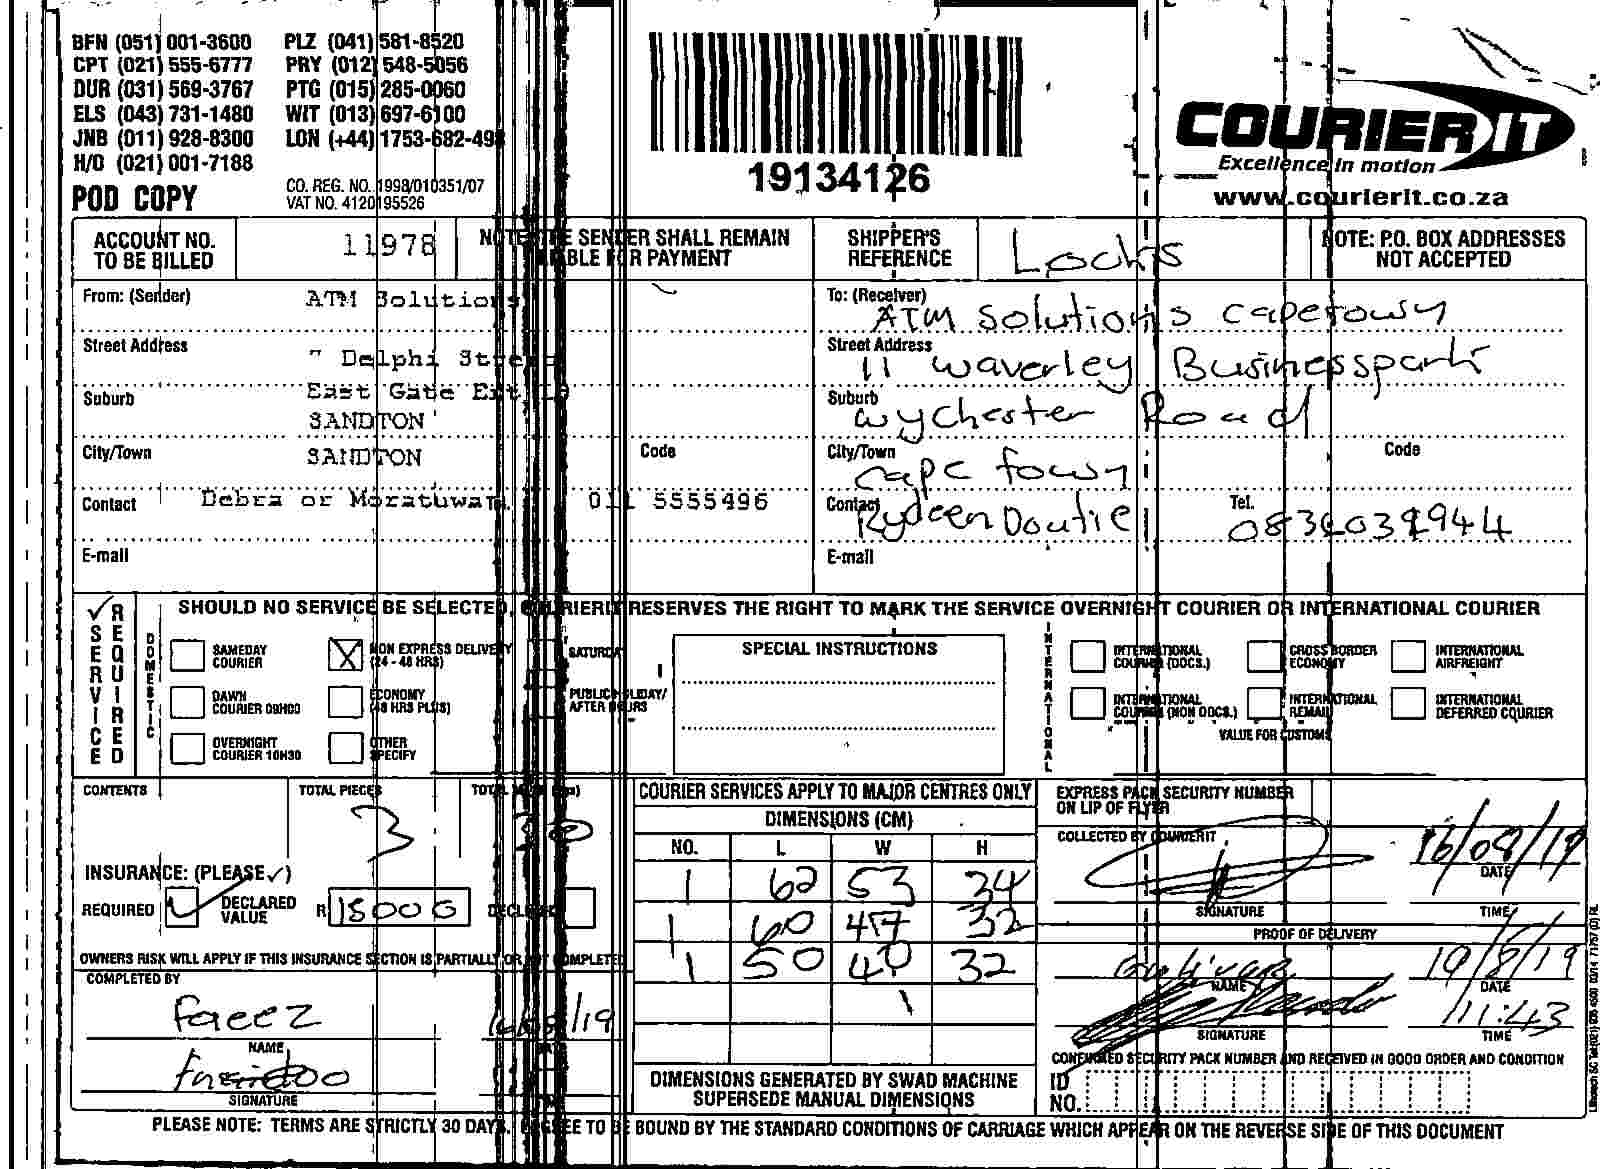 BFN (051) 001-3600 PLZ (041) 581-8520
CPT (021) 555-6777 PRY (012) 548-5056
DUR (031) 569-3767 PTG (015) 285-0060
ELS (043) 731-1480 WIT (013) 697-6100
JNB (011) 928-8300 LON (+44) 1753-682-498
H/O (021) 001-7188
POD COPY
CO. REG. NO. 1998/010351/07
VAT NO. 4120195526
19134126
COURIER IT
Excellence in motion
www.courierit.co.za
ACCOUNT NO. TO BE BILLED
11978
NOTE: THE SENDER SHALL REMAIN
LIABLE FOR PAYMENT
SHIPPER'S REFERENCE
Locks
NOTE: P.O. BOX ADDRESSES
NOT ACCEPTED
From: (Sender) ATM Solutions
Street Address 7 Delphi Street
Suburb East Gate Ext
SANDTON
City/Town SANDTON Code
Contact Debra or Moratuwa Tel. 011 5555496
E-mail
To: (Receiver) ATM Solutions Capetown
Street Address 11 Waverley Businesspark
Suburb Wychester Road
City/Town Cape Town Code
Contact Rydeen Doutie Tel.
E-mail
SERVICE REQUIRED
SHOULD NO SERVICE BE SELECTED, COURIERIT RESERVES THE RIGHT TO MARK THE SERVICE OVERNIGHT COURIER OR INTERNATIONAL COURIER
DOMESTIC
SAMEDAY COURIER
NON EXPRESS DELIVERY (24 - 48 HRS)
SATURDAY
DAWN COURIER 09H00
ECONOMY (48 HRS PLUS)
PUBLIC HOLIDAY/ AFTER HOURS
OVERNIGHT COURIER 10H30
OTHER SPECIFY
SPECIAL INSTRUCTIONS
INTERNATIONAL
INTERNATIONAL COURIER (DOCS.)
CROSS BORDER ECONOMY
INTERNATIONAL AIRFREIGHT
INTERNATIONAL COURIER (NON DOCS.)
INTERNATIONAL REMAIL
INTERNATIONAL DEFERRED COURIER
VALUE FOR CUSTOMS
CONTENTS
TOTAL PIECES 3
INSURANCE: (PLEASE ✓)
REQUIRED DECLARED VALUE R 15000 DECLINED
OWNERS RISK WILL APPLY IF THIS INSURANCE SECTION IS PARTIALLY OR NOT COMPLETED
COMPLETED BY
Fareez 16/08/19
NAME DATE
SIGNATURE
COURIER SERVICES APPLY TO MAJOR CENTRES ONLY
DIMENSIONS (CM)
NO. L W H
1 62 53 34
1 60 47 32
1 50 40 32
DIMENSIONS GENERATED BY SWAD MACHINE
SUPERSEDE MANUAL DIMENSIONS
EXPRESS PACK SECURITY NUMBER
ON LIP OF FLYER
COLLECTED BY COURIERIT
16/08/19
SIGNATURE DATE
TIME
PROOF OF DELIVERY
19/8/19
NAME DATE
11:43
SIGNATURE TIME
CONFIRMED SECURITY PACK NUMBER AND RECEIVED IN GOOD ORDER AND CONDITION
ID NO.
PLEASE NOTE: TERMS ARE STRICTLY 30 DAYS. I AGREE TO BE BOUND BY THE STANDARD CONDITIONS OF CARRIAGE WHICH APPEAR ON THE REVERSE SIDE OF THIS DOCUMENT